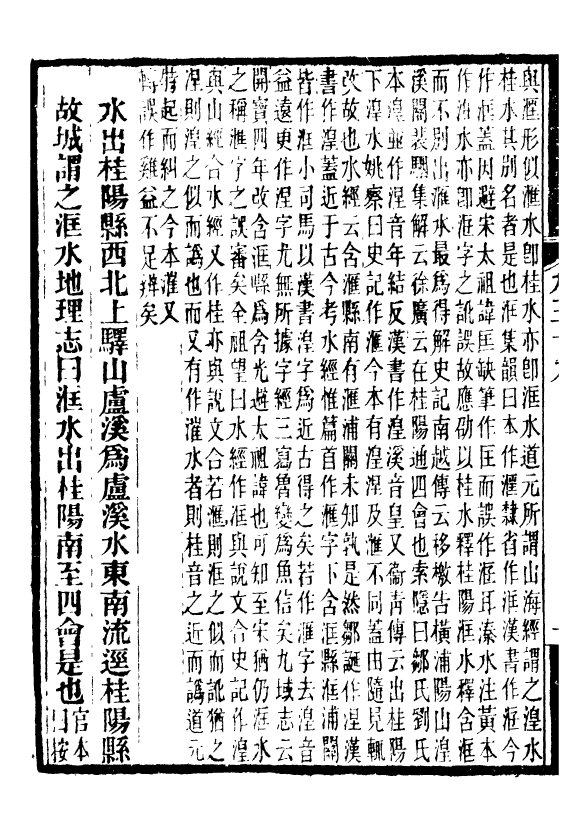 與滙形似滙水卽桂水亦卽洭水道元所謂山海經謂之湟水
桂水其別名者是也洭集韻曰本作灑隸省作洭漢書作洭今
作洭蓋因避宋太祖諱匡缺筆作匡而誤作洭耳溱水注黃本
作洭水亦卽洭字之訛誤故應劭以桂水釋桂陽洭水釋含洭
而不別出滙水最爲得解史記南越傳云移檄告橫浦陽山湟
溪關裴駰集解云徐廣云在桂陽通四會也索隱曰鄒氏劉氏
本湟並作涅音年結反漢書作湟溪音皇又衞靑傳云出桂陽
下湟水姚察曰史記作滙今本有湟涅及滙不同蓋由隨見輒
改故也水經云含滙縣南有滙浦關未知孰是然鄒誕作涅漢
書作湟蓋近于古今考水經惟篇首作滙字下含洭縣洭浦關
皆作洭小司馬以漢書湟字爲近古得之矣若作滙字去湟音
益遠更作涅字尤無所據字經三寫魯變爲魚信矣九域志云
開寶四年改含洭縣爲含光避太祖諱也可知至宋猶仍洭水
之稱滙字之誤審矣全祖望曰水經作洭與說文合史記作湟
與山經合水經又作桂亦與說文合若滙則洭之似而訛猶之
涅則湟之似而譌也而又有作漼水者則桂音之近而譌道元
特起而糾之今本漼又
轉誤作雞益不足辨矣
水出桂陽縣西北上驛山盧溪爲盧溪水東南流逕桂陽縣
故城謂之洭水地理志曰洭水出桂陽南至四會是也官本曰按